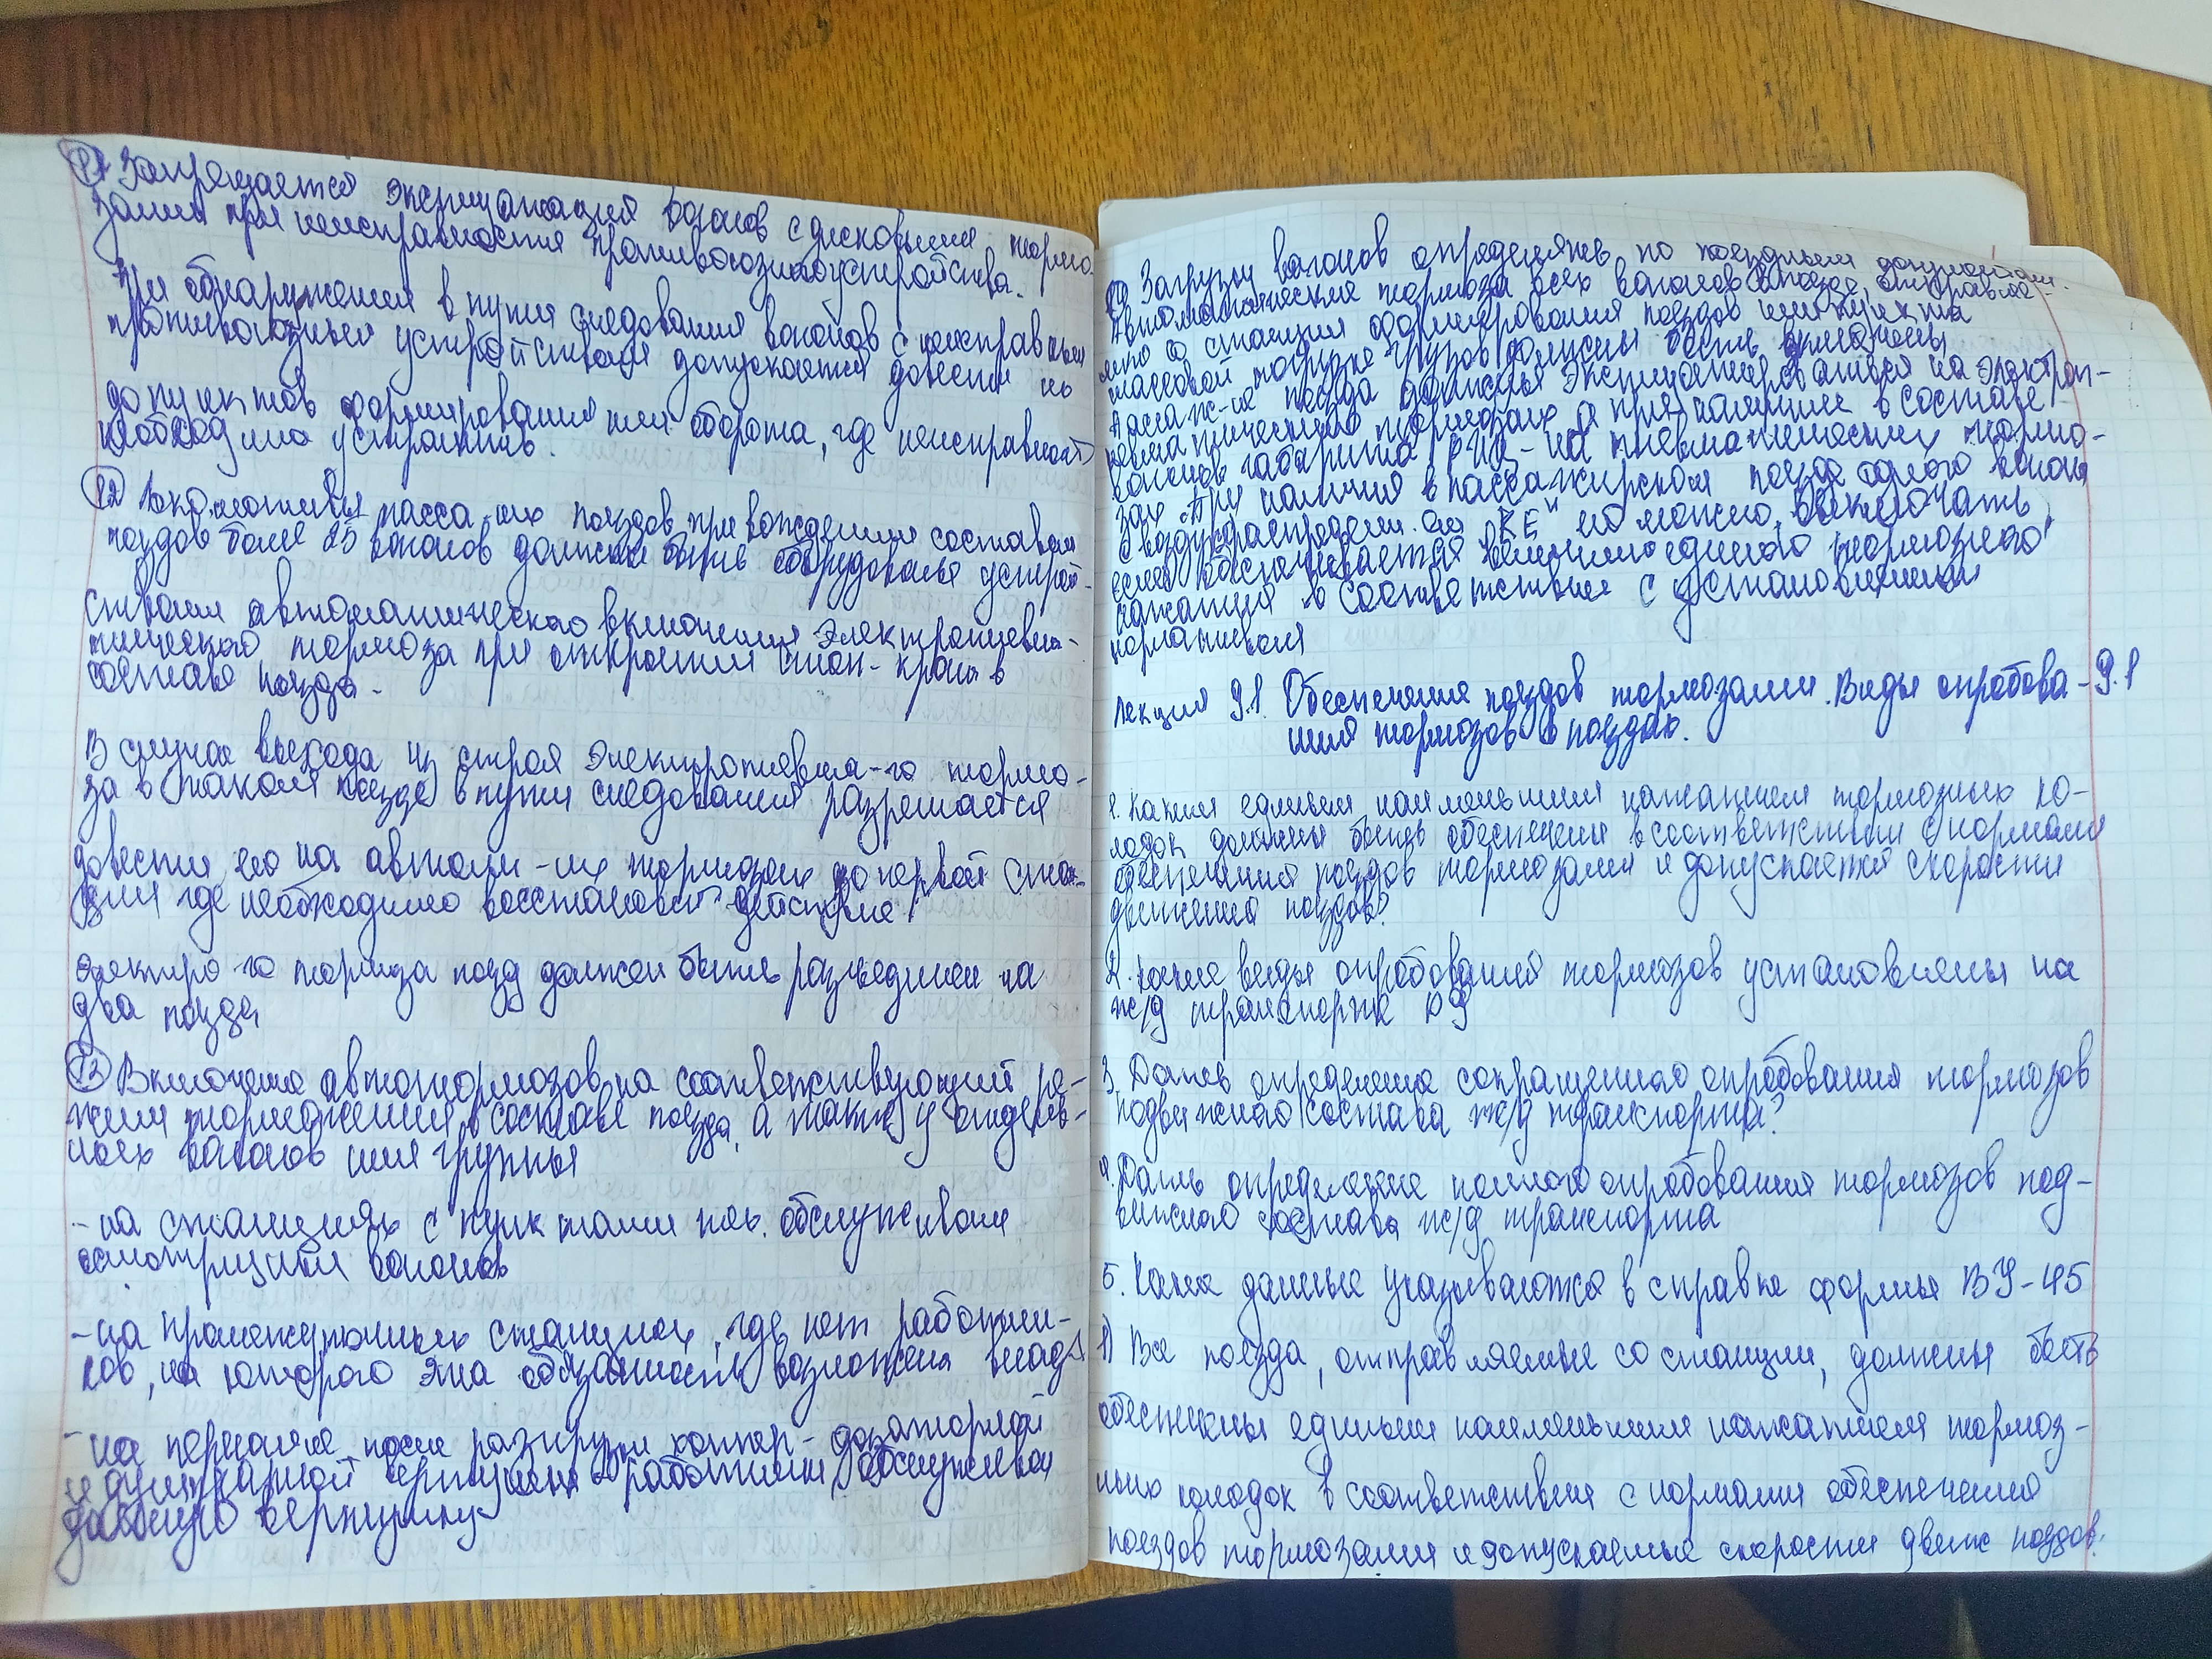 11 Запрещается эксплуатация вагонов с дисковыми тормо-
зами при неисправности противоюзного устройства.
При обнаружении в пути следования вагонов с неисправным
противоюзным устройством допускается довести их
до пунктов формирования или оборота, где неисправность
необходимо устранить.
12 Локомотивы пасса-их поездов при вождении составом
поездов более 25 вагонов должны быть оборудованы устрой-
ствами автоматического включения электропневма-
тического тормоза при открытии стоп-крана в
составе поезда.
В случае выхода из строя электропневма-го тормо-
за в таком поезде в пути следования разрешается
довести его на автом-их тормозах до первой стан-
ции где необходимо восстановить действие
электро-го тормоза позд должен быть разъединен на
два поезда
13 Включение автотормозов на соответствующий ре-
жим торможения в составе поезда, а также у отдель-
ных вагонов или группы
- на станциях с пунктами тех. обслуживания
осмотрщики вагонов
- на промежуточных станциях, где нет работни-
ков, на которого эта обязанность возложена
- на перегоне после разгрузки хоппер-дозаторной
и думпкарной вертушки работники, обслуживающ
данную вертушку
Загрузки вагонов определять по поездным документам.
Автоматические тормоза всех вагонов в поезде, отправле-
нно со станции формирования поездов или пункта
массовой погрузки грузов должны быть включены
Пассаж-ие поезда должны эксплуатироваться на электроп-
невматических тормозах, а при наличии в составе
вагонов габарита РИЦ - на пневматических тормо-
зах. При наличии в пассажирском поезде одного вагона
с воздухораспределит. "КЕ" его можно выключать
если обеспечивается единого тормозного
нажатия в соответствии с установленными
нормативами
Лекция 9.1. Обеспечения поездов тормозами. Виды опробова- 9.1
ния тормозов в поездах.
1. Каким единым наименьшим нажатием тормозных ко-
лодок должны быть обеспечены в соответствии с нормами
обеспечения поездов тормозами и допускается скорости
движения поездов?
2. Какие виды опробования тормозов установлены на
ж/д транспорте РФ
3. Дать определение сокращенного опробования тормозов
подвижного состава ж/д транспорта?
4. Дать определение полного опробования тормозов под-
вижного состава ж/д транспорта
5. Какие данные указываются в справке формы ВУ-45
1) Все поезда, отправляемые со станции, должны быть
обеспечены единым наименьшим нажатием тормоз-
ных колодок в соответствии с нормами обеспечения
поездов тормозами и допускаемые скорости движ поездов.